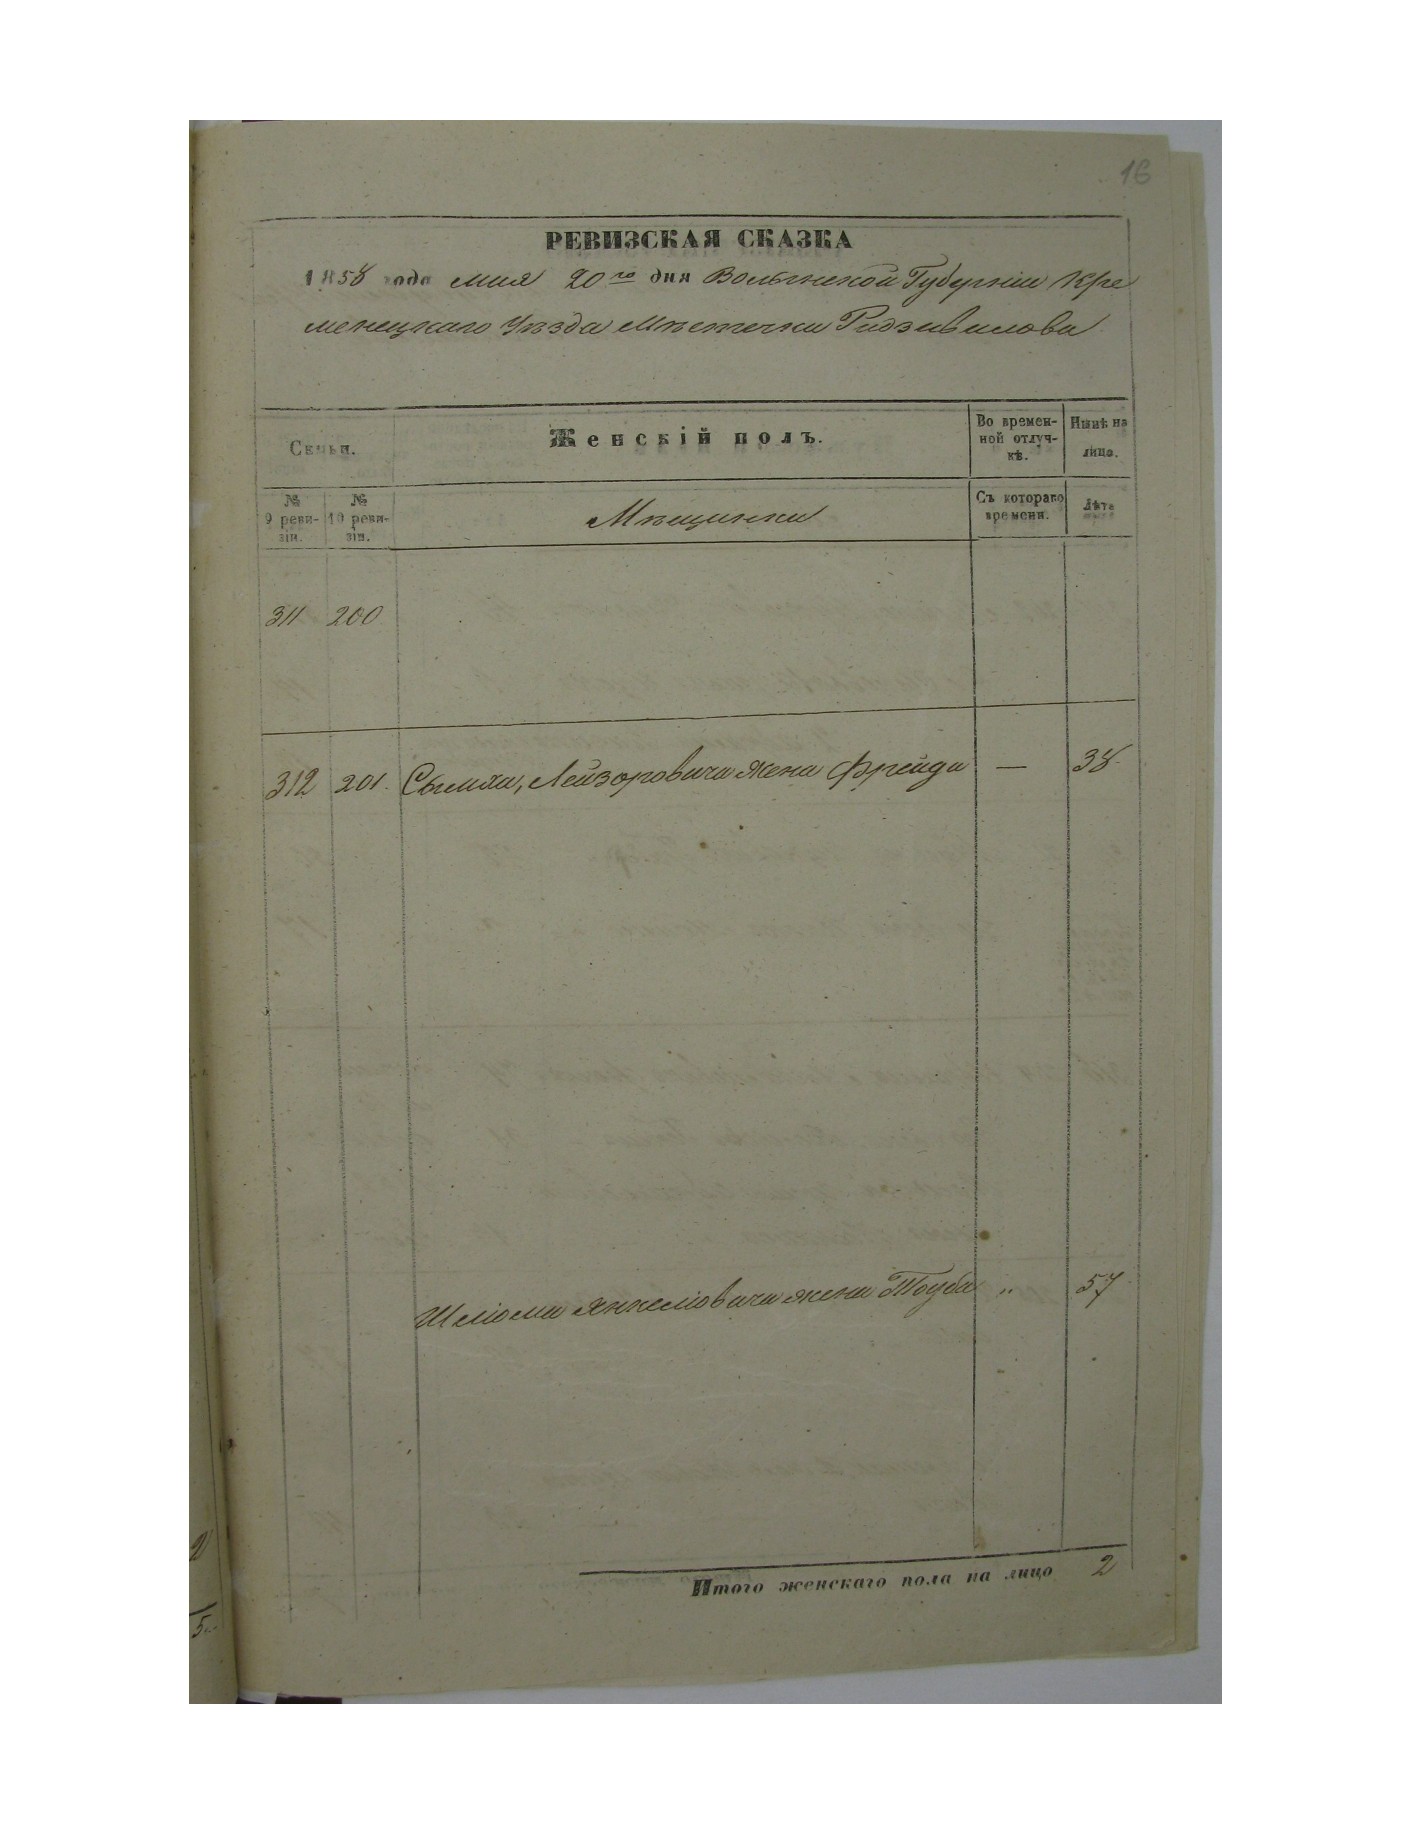 16
РЕВИЗСКАЯ СКАЗКА
1858 года мая 20го дня Волынской Губерніи Кре
менецкаго Уѣзда Мѣстечка Радзивилова
Семьи.
Женскій полъ.
Во времен-
ной отлуч-
кѣ.
Нынѣ на
лицо.
№
9 реви-
зіи.
№
10 реви-
зіи.
Мѣщанки
Съ котораго
времени.
Лѣта
311 200
312 201. Сымхи, Лейзоровича жена Фрейда — 38
Шліома Янкеліовича жена Тоуба " 57
Итого женскаго пола на лицо 2
2
5